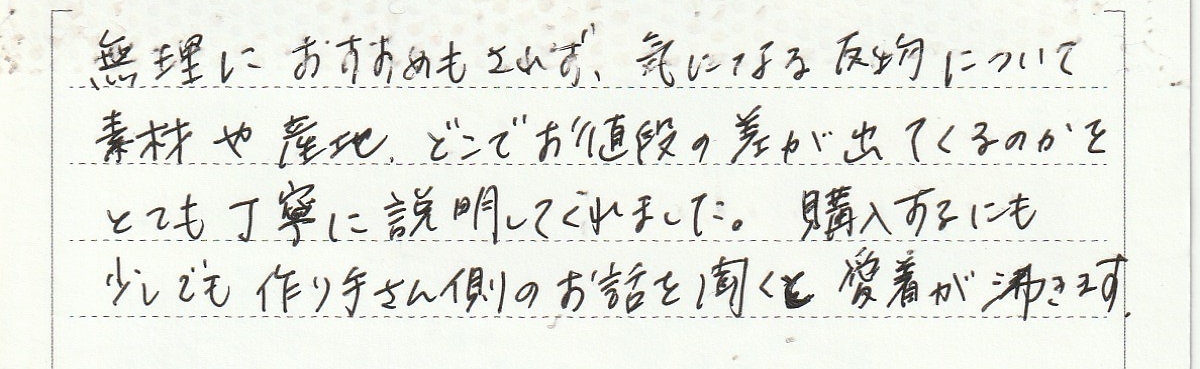 無理におすすめもされず、気になる反物について
素材や産地、どこでお値段の差が出てくるのかを
とても丁寧に説明してくれました。購入するにも
少しでも作り手さん側のお話を聞くと愛着が沸きます.